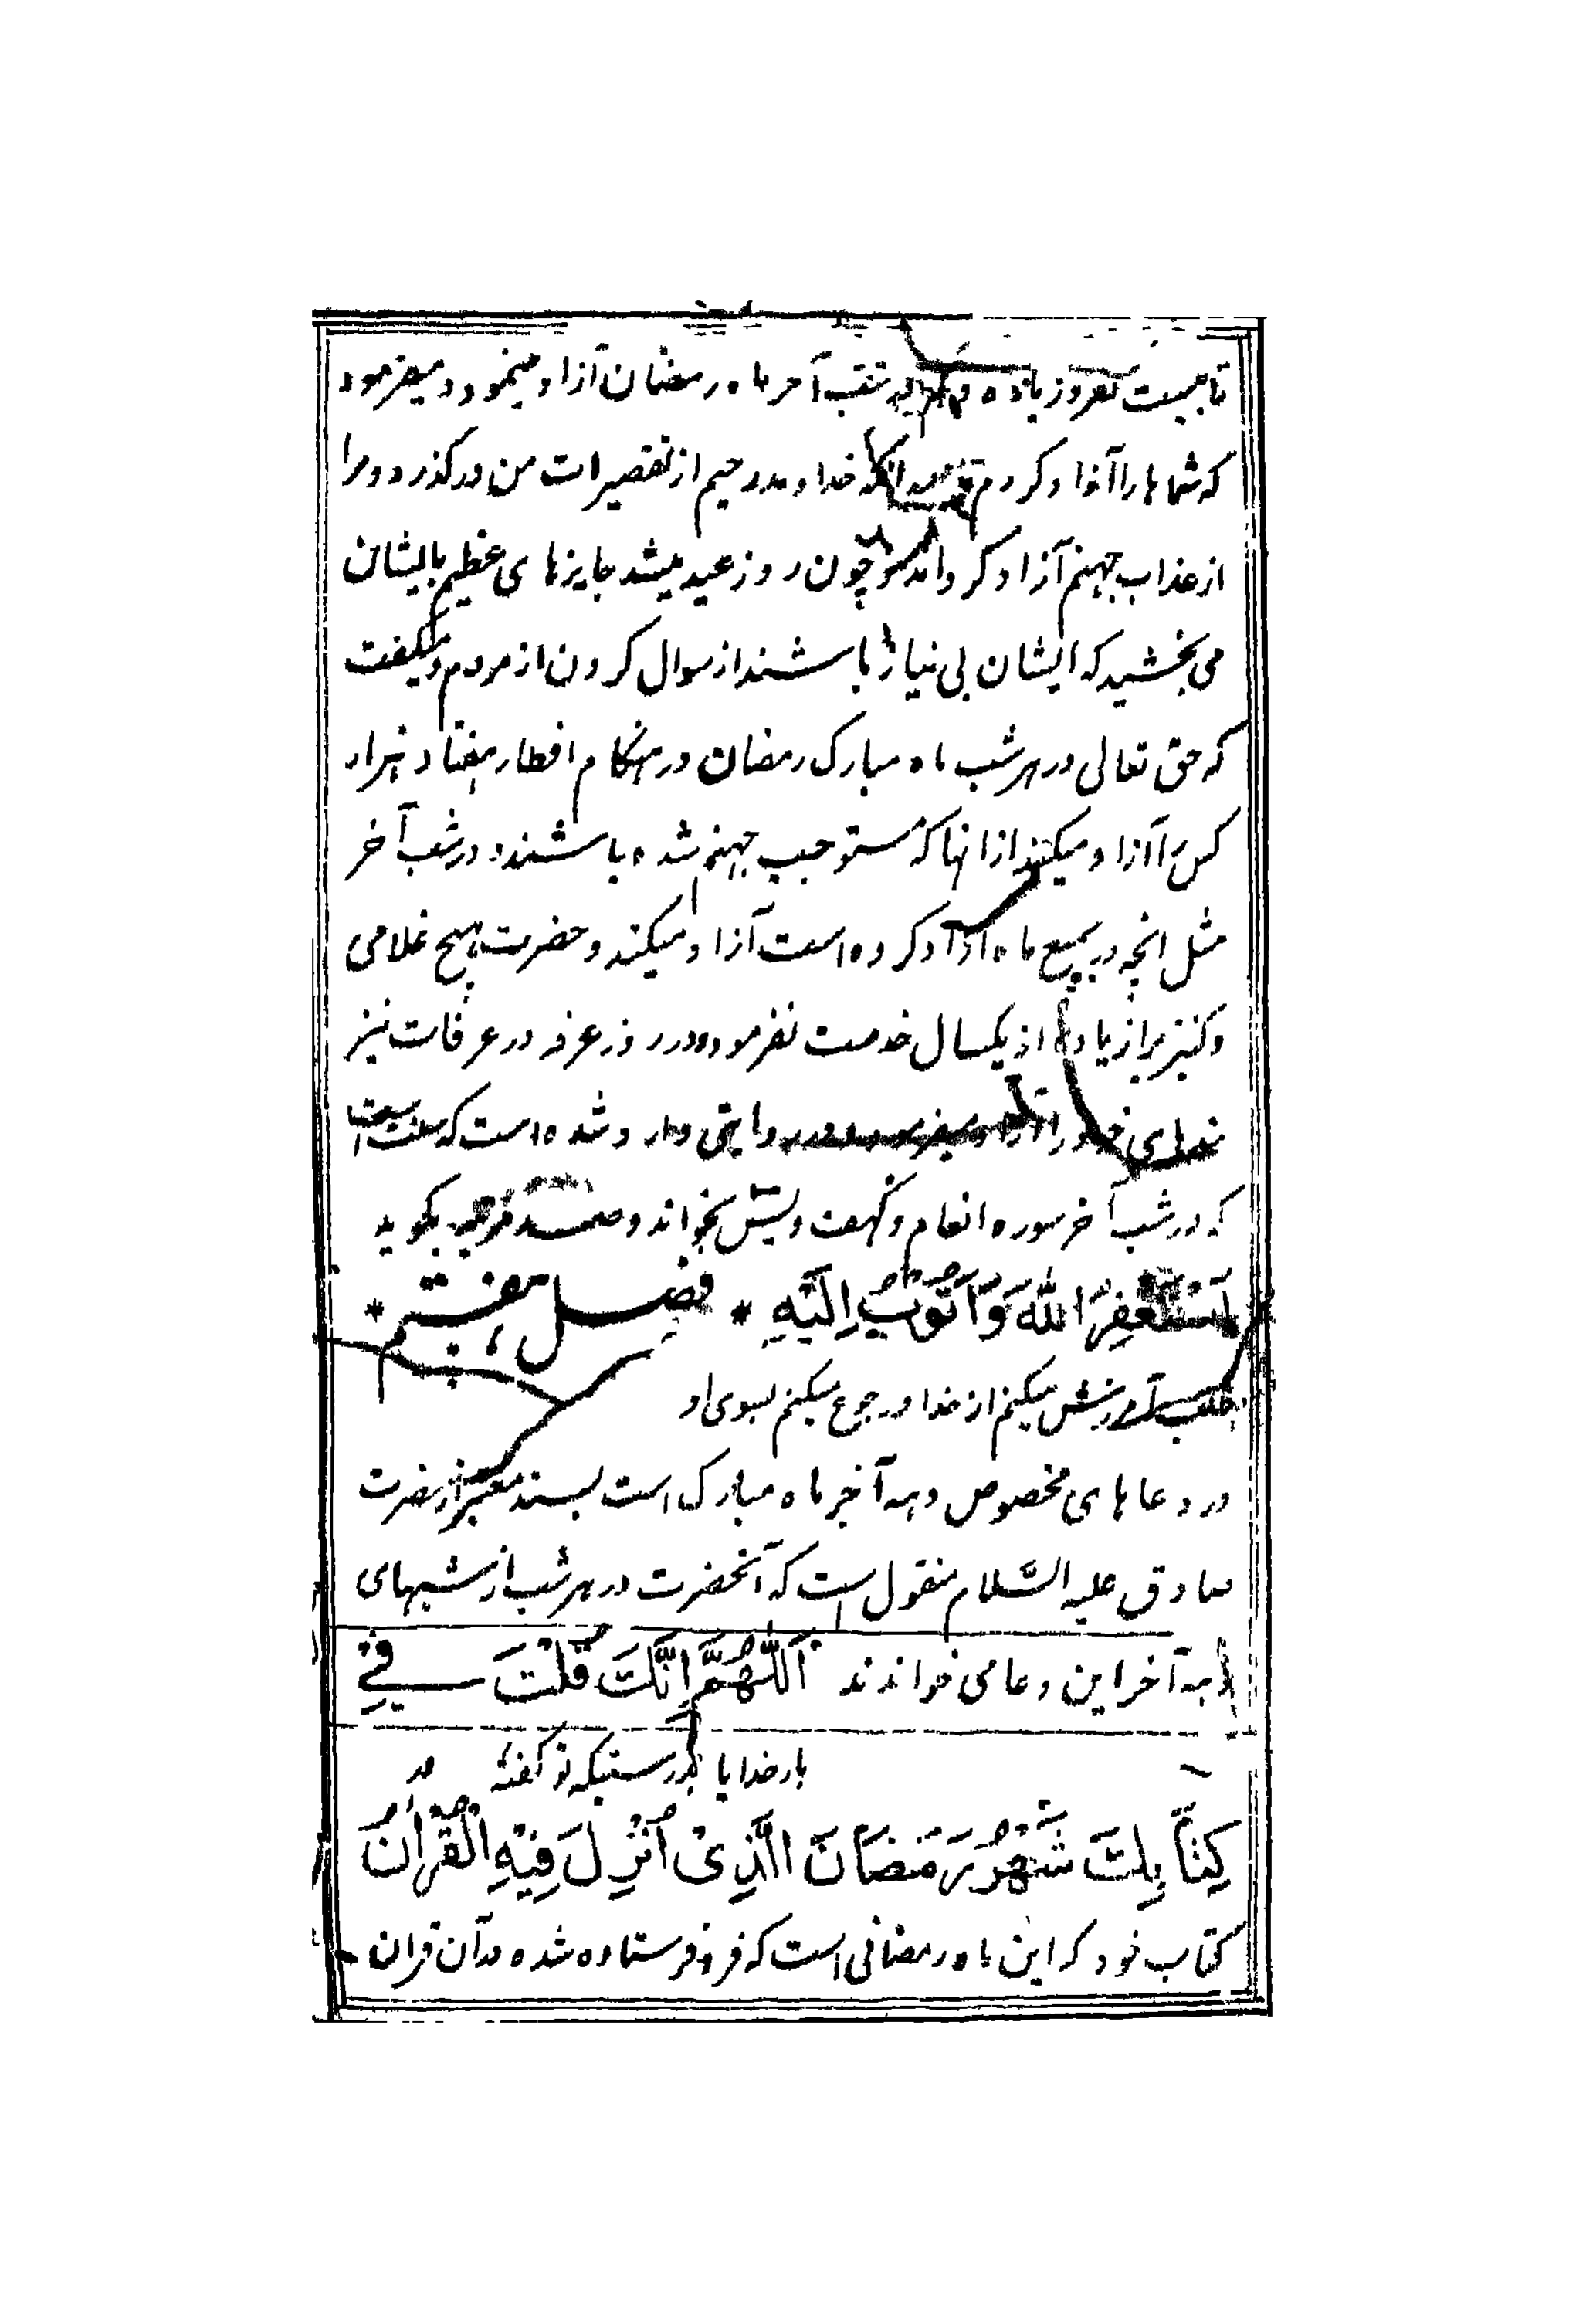 تا بیست نفر و زیاده شب آخر ماه رمضان آزاد مینمود و میفرمود
که شما ها را آزاد کردم خداوند رحیم از تقصیرات من درگذرد و مرا
از عذاب جهنم آزاد گرداند و چون روز عید میشد جایزه های عظیم بایشان
می بخشید که ایشان بی نیاز باشند از سوال کردن از مردم و میگفت
که حق تعالی در هر شب ماه مبارک رمضان در هنگام افطار هفتاد هزار
کس را آزاد میکند از انها که مستوجب جهنم شده باشند و در شب آخر
مثل انچه در جمیع ماه آزاد کرده است آزاد میکند و حضرت هیچ غلامی
و کنیز را زیاده از یکسال خدمت نفرموده و در روز عرفه در عرفات نیز
روایتی وارد شده است که سنت است
که در شب آخر سوره انعام و کهف و یس بخواند و صد مرتبه بگوید
اَسْتَغْفِرُ اللّٰهَ وَاَتُوْبُ اِلَیْهِ * فصل هفتم *
طلب آمرزش میکنم از خدا و رجوع میکنم بسوی او
در دعا های مخصوص دهه آخر ماه مبارک است بسند معتبر از حضرت
صادق علیه السّلام منقول است که آنحضرت در هر شب از شبهای
دهه آخر این دعا می خواندند اَللّٰهُمَّ اِنَّکَ قُلْتَ فِیْ
بار خدایا بدرستیکه تو گفتهٔ در
کِتَابِکَ شَهْرُ رَمَضَانَ الَّذِیْ اُنْزِلَ فِیْهِ الْقُرْاٰنُ
کتاب خود که این ماه رمضانی است که فرو فرستاده شده در آن قران